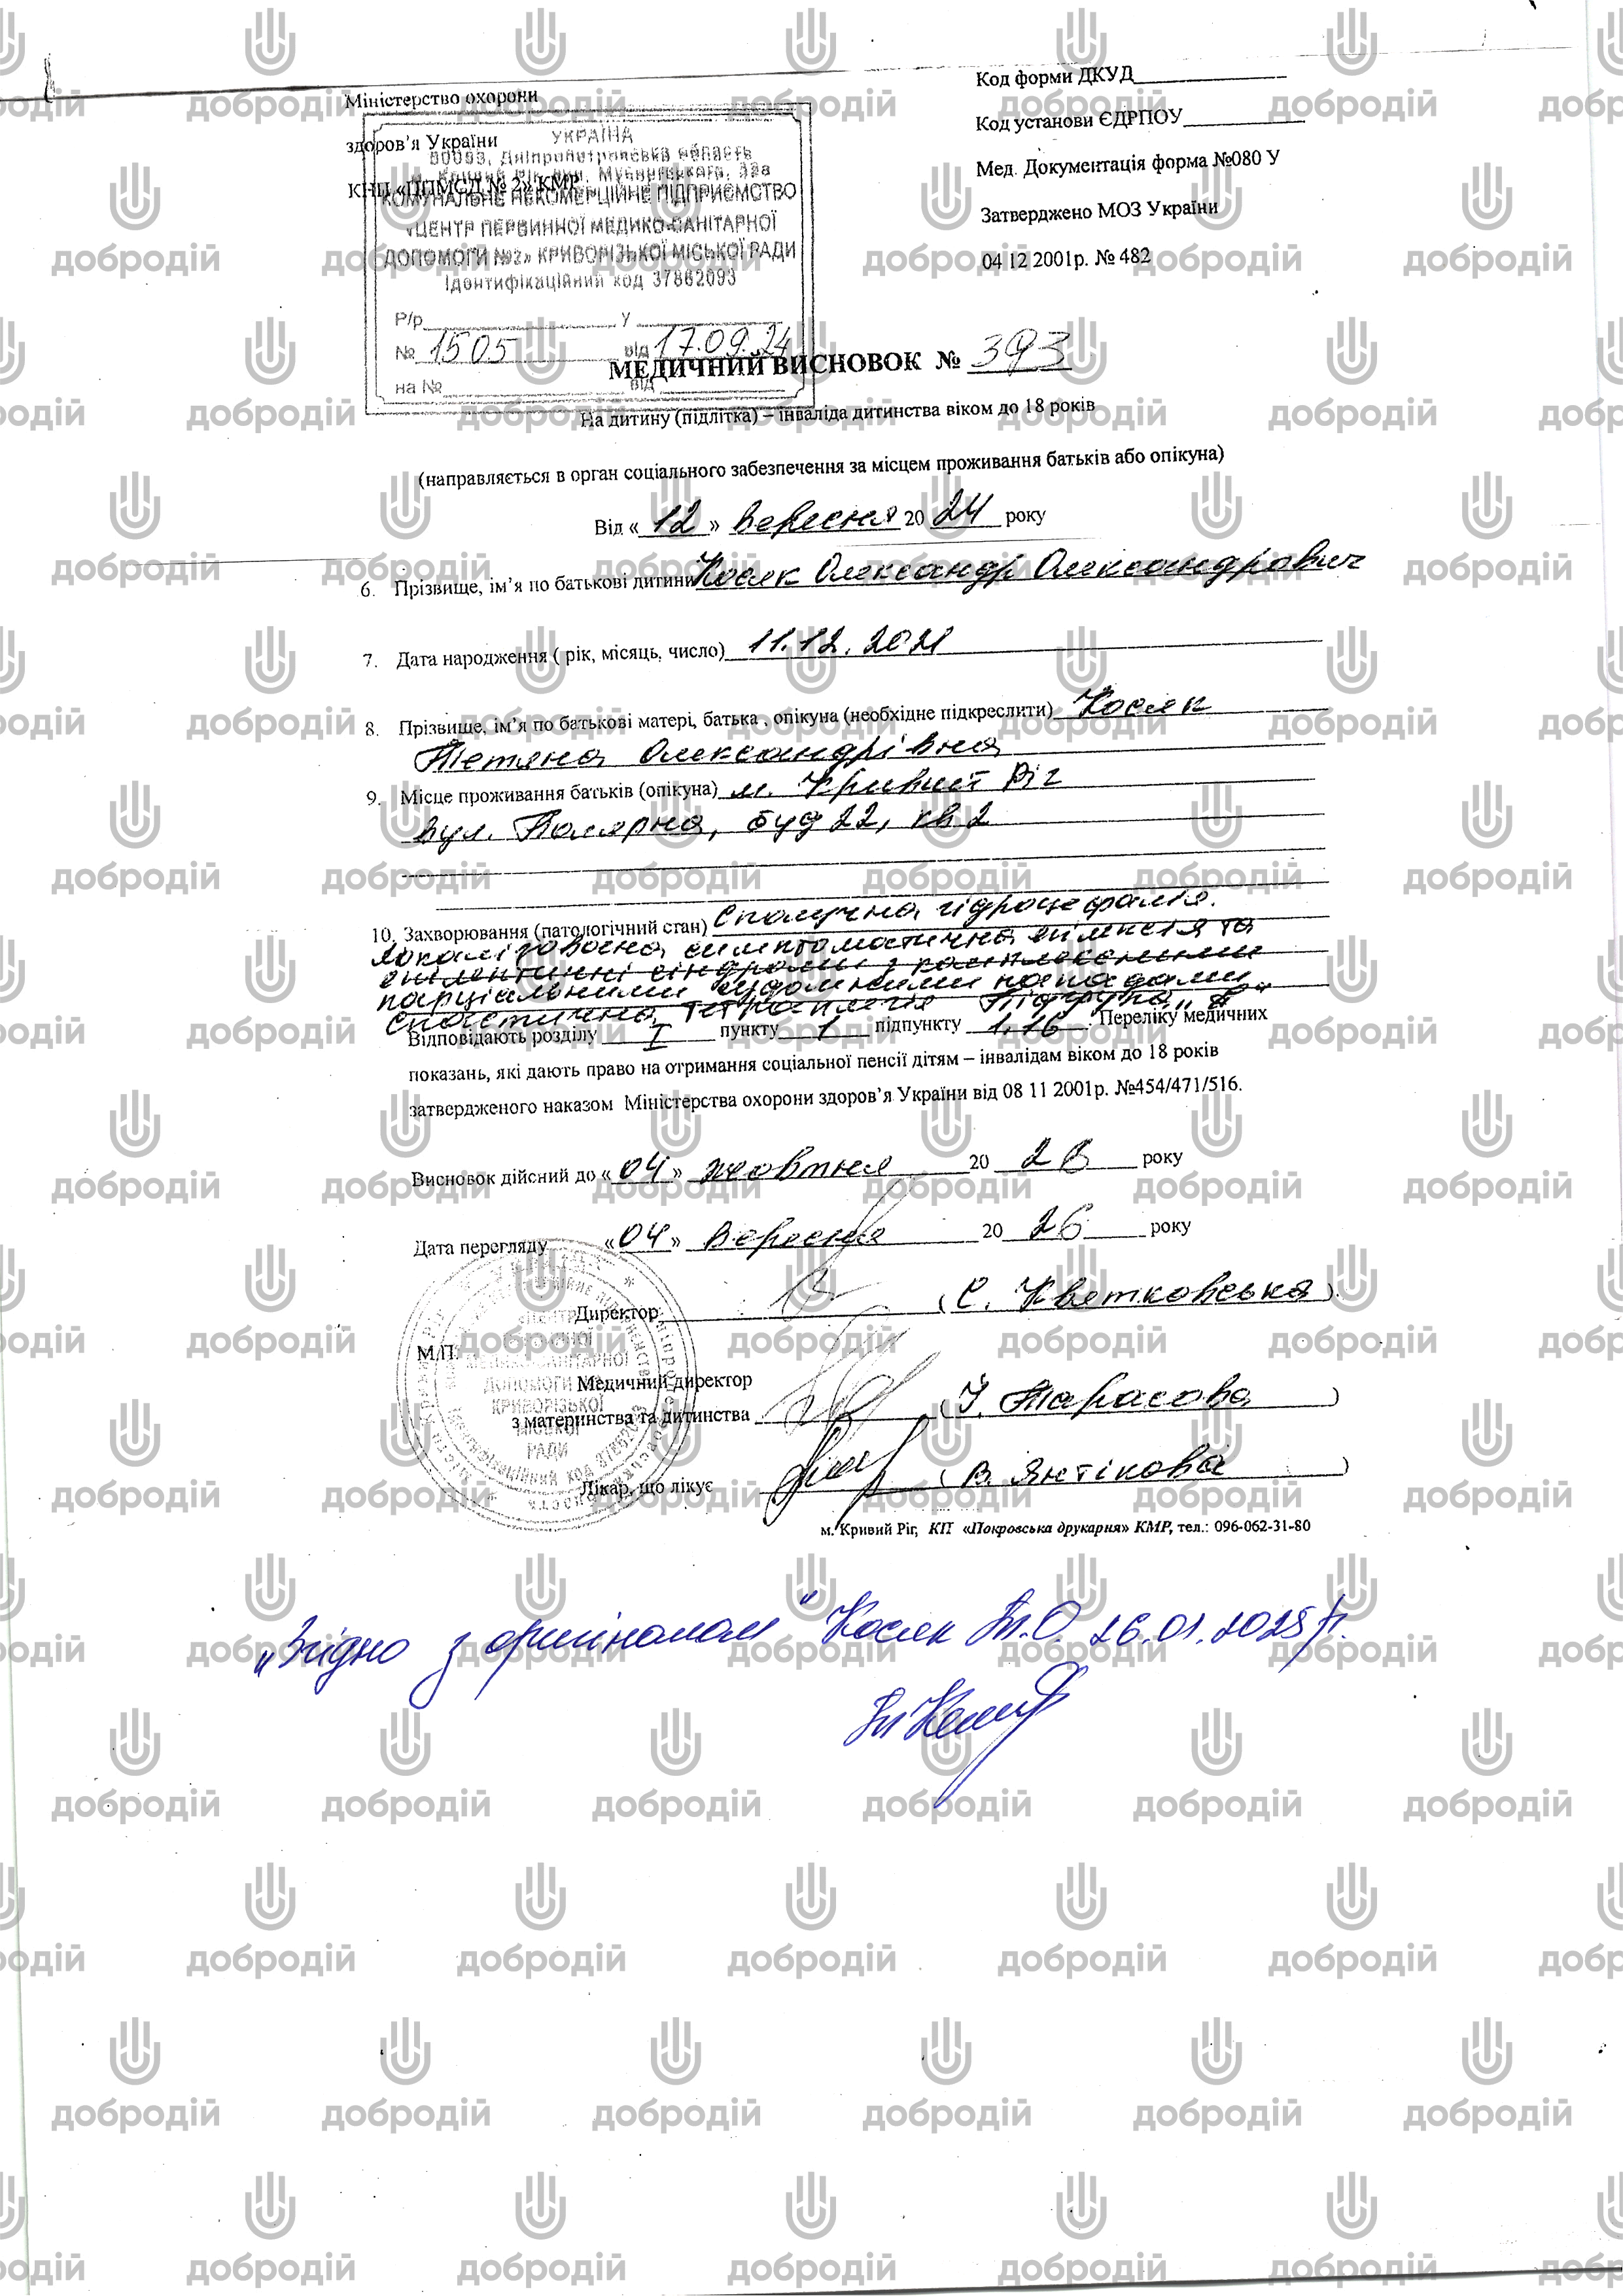 Міністерство охорони
здоров'я України
КНП «ЦПМСД № 2» КМР
УКРАЇНА
Дніпропетровська область
КОМУНАЛЬНЕ НЕКОМЕРЦІЙНЕ ПІДПРИЄМСТВО
«ЦЕНТР ПЕРВИННОЇ МЕДИКО-САНІТАРНОЇ
ДОПОМОГИ №2» КРИВОРІЗЬКОЇ МІСЬКОЇ РАДИ
Ідентифікаційний код 37862093
Р/р у
№ 1505 від 17.09.24
на № від
Код форми ДКУД
Код установи ЄДРПОУ
Мед. Документація форма №080 У
Затверджено МОЗ України
04 12 2001р. № 482
МЕДИЧНИЙ ВИСНОВОК № 393
На дитину (підлітка) – інваліда дитинства віком до 18 років
(направляється в орган соціального забезпечення за місцем проживання батьків або опікуна)
Від « 12 » вересня 20 24 року
6. Прізвище, ім'я по батькові дитини Косяк Олександр Олександрович
7. Дата народження ( рік, місяць, число) 11.12.2021
8. Прізвище, ім'я по батькові матері, батька , опікуна (необхідне підкреслити) Косяк
Тетяна Олександрівна
9. Місце проживання батьків (опікуна) м. Кривий Ріг
вул. Полярна, буд 22, кв 2
10. Захворювання (патологічний стан) Сполучна гідроцефалія.
Локалізована симптоматична епілепсія та
епілептичні синдроми з комплексними
парціальними судомними нападами.
Спастична тетраплегія Підгрупа „А"
Відповідають розділу I пункту 1 підпункту 1.16 . Переліку медичних
показань, які дають право на отримання соціальної пенсії дітям – інвалідам віком до 18 років
затвердженого наказом Міністерства охорони здоров'я України від 08 11 2001р. №454/471/516.
Висновок дійсний до « 04 » жовтня 20 26 року
Дата перегляду « 04 » вересня 20 26 року
Директор ( С. Кветковська )
М/П
Медичний директор
з материнства та дитинства ( І. Тарасова )
Лікар, що лікує ( В. Янтікова )
ДОПОМОГИ
КРИВОРІЗЬКОЇ
МІСЬКОЇ
РАДИ
м. Кривий Ріг, КП «Покровська друкарня» КМР, тел.: 096-062-31-80
„Згідно з оригіналом" Косяк Т.О. 26.01.2025 р.
добродій